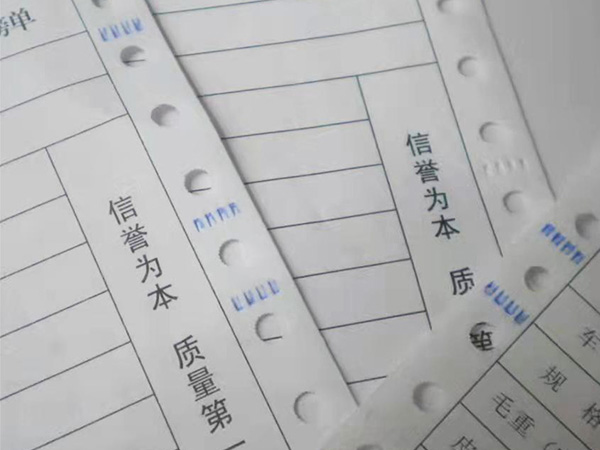 单
信誉为本 质量第一
信誉为本 质
车
规格
毛重（
皮